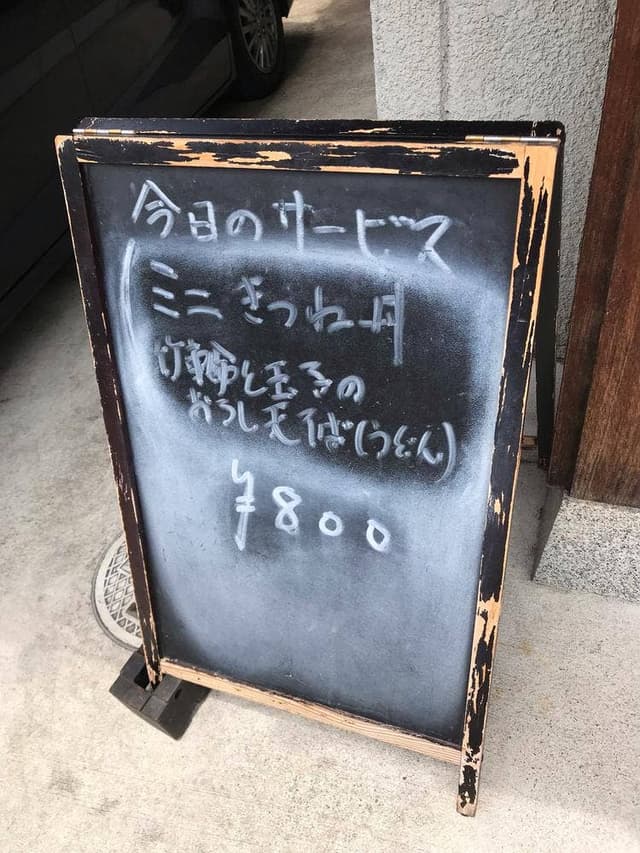 今日のサービス
ミニ きつね丼
竹輪と玉子の
おろし天そば(うどん)
¥800